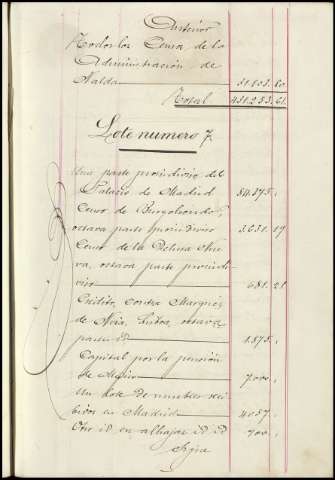 Anterior
Todos los Censos de la
Administración de
Nalda 31.803.80
Total 451.253.61
Lote numero 7
Una parte proindiviso del
Palacio de Madrid 84.375.
Censo de Burgohondo,
octava parte proindiviso 3.631.19
Censo de la Dehesa Nue-
va, octava parte proindi-
viso 681.21
Credito contra Marques
de Nisa, Lisboa, octava
parte id 1.875.
Capital por la pensión
de Mejico 7.000.
Un lote de muebles reci-
bidos en Madrid 4.057.
Otro id en alhajas id id 700.
Sigue